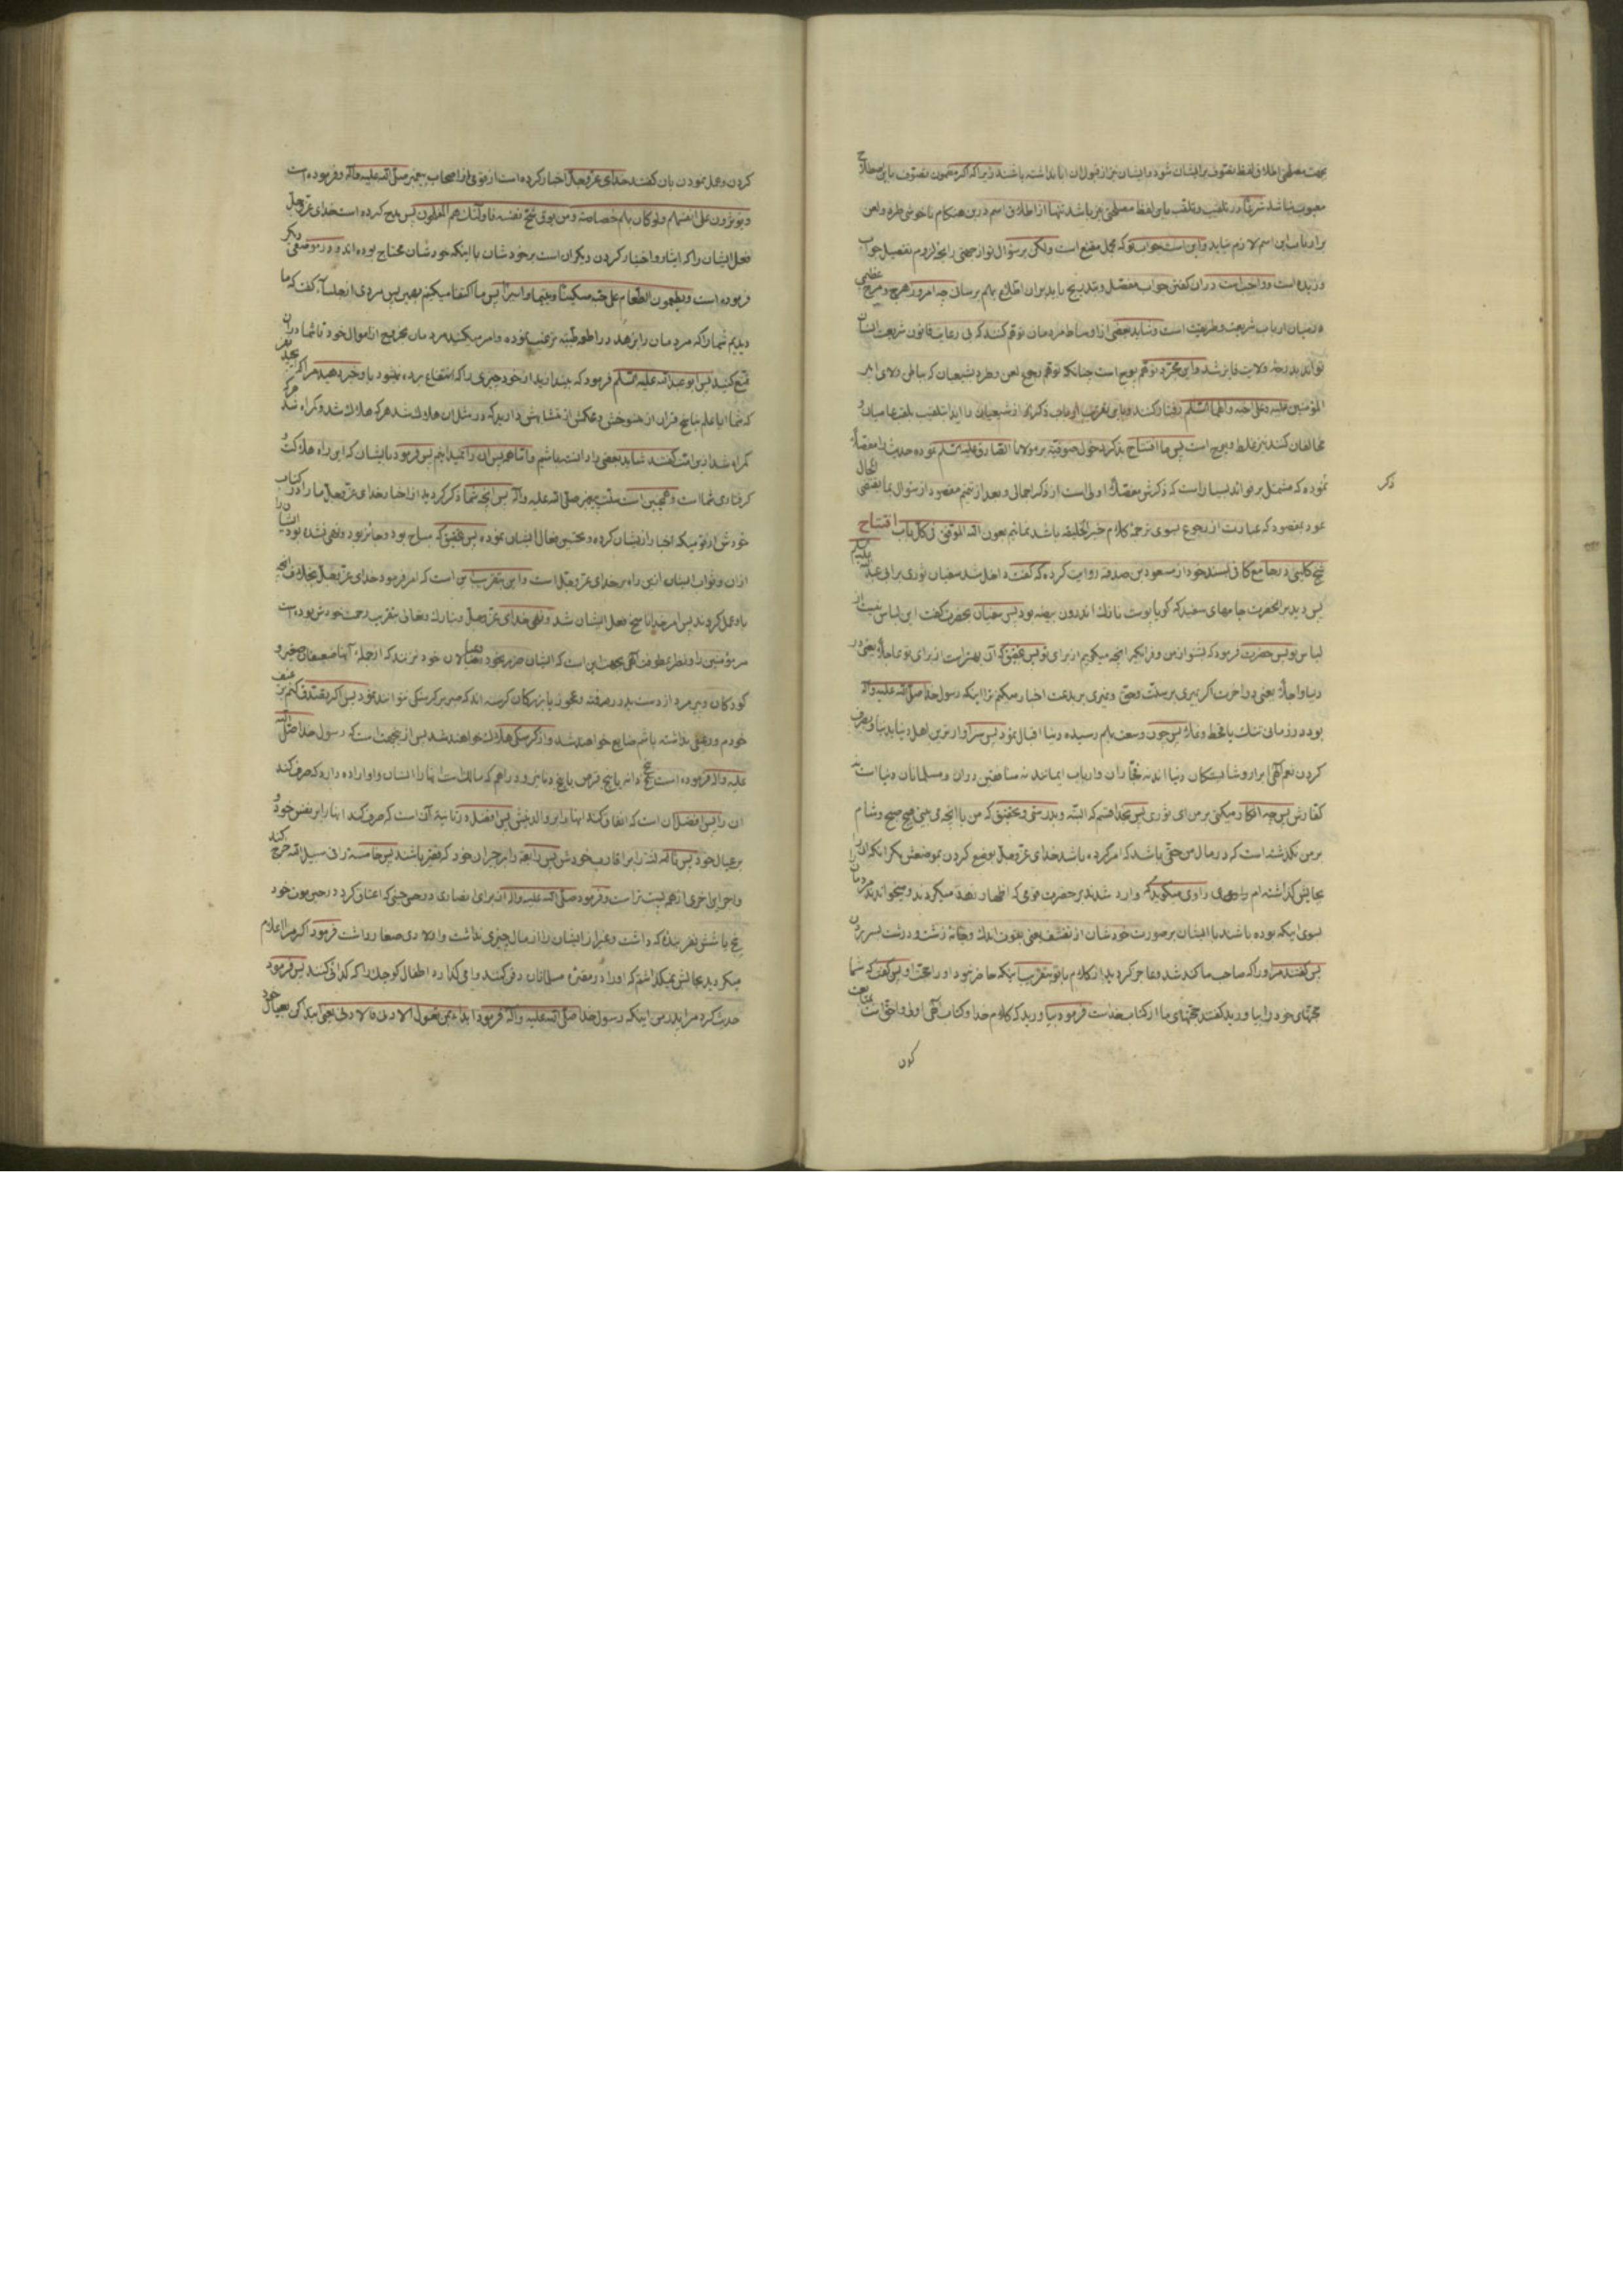 بجهت مصطلحی اطلاق لفظ تصوف بر ایشان شود و ایشان نیز از قبول آن ابا نداشته باشند زیرا که اگر مضمون تصوف باین صلاح
معیوب نباشد شرعا در تلقیب و تلقب باین لفظ مصطلحی نیز باشد تنها از اطلاق اسم درین هنکام ناخوشی طرد و لعن
بر ارباب این اسم لازم نیاید و این است جواب تو که مجمل مقنع است ولکن بر سؤال تو از جهتی رایحه لزوم تفصیل جواب
وزیده است و واجب است در آن کفتن جواب مفصل و بتدریج باید بر آن اطلاع بهم برسانی چه امروز هرج و مرج عظیمی
در میان ارباب شریعت و طریقت است و شاید بعضی از اوساط مردمان توهم کنند که بی رعایت قانون شریعت ایشان
تواند بدرجه ولایت فایز شد و این مجرد توهم پوچ است چنانکه توهم رجوع لعن و طرد بشیعیان که بباطن ولای امیر
المؤمنین علیه و علی اخیه و اطهار السلم رفتار کنند و باین تقریب ارباب ذکر نیز از شیعیان را باید بتلقیب بلقب عامیان و
مخالفان کنند نیز غلط و پوچ است پس ما افتتاح بذکر دخول صوفیه بر مولانا الصادق علیه السلم نموده حدیث را مفصلا
نموده که مشتمل بر فواید بسیار است که ذکرش مفصلا اولی است از ذکر اجمالی و بعد از تتمیم مقصود از سئوال بما یقتضی الحال
ذکر
عود بمقصود که عبارت از رجوع بسوی ترجمهٔ کلام خیر الخلیقه باشد نمائیم بعون الله الموفق فی کل باب افتتاح
شیخ کلینی در جامع کافی بسند خود از مسعود بن صدقه روایت کرده که کفت داخل شد سفیان ثوری بر ابی عبدالله
پس دید بر آنحضرت جامهای سفید که کویا پوست نازک اندرون بیضه بود پس سفیان بحضرت کفت این لباس نیست از
لباس تو پس حضرت فرمود که بشنو از من و فراکیر آنچه میکویم از برای تو پس بتحقیق که آن بهتر است از برای تو عاجلا یعنی در
دنیا و آجلا یعنی در آخرت اکر بمیری بر سنت و حق و نمیری بر بدعت اخبار میکنم ترا اینکه رسول خدا صلی الله علیه و آله
بود در زمانی تنک با قحط و غلا پس چون وسعت بهم رسیده دنیا اقبال نمود پس سزاوارترین اهل دنیا بدنیا و بصرف
کردن نعم الهی ابرار و شایستکان دنیا اند نه فجار آن و ارباب ایمانند نه منافقین در آن و مسلمانان دنیا است نه
کفارش پس چه انکار میکنی بر من ای ثوری پس بخدا قسم که البته و بدرستی و بتحقیق که من با آنچه می بینی هیچ صبح و شام
بر من نکذشته است که در مال من حقی باشد که امر کرده باشد خدای عز و جل بوضع کردن بموضعش مکر آنکه آن را
بجایش کذاشته ام راوی میکوید که وارد شدند بر حضرت قومی که اظهار زهد میکردند و میخواندند مردمان را
بسوی اینکه بوده باشند با ایشان بر صورت خودشان از تقشف یعنی بقوت اندک و جامهٔ زشت و درشت بسر بردن
پس کفتند مر او را که صاحب ما کند شد و عاجز کردید از کلام با تو بتقریب اینکه حاضر نبود او را حجت او پس کفت که شما
حجتهای خود را بیاورید کفتند حجتهای ما از کتاب خداست فرمود بیاورید که کلام خدا و کتاب الهی اولی و احق است
کردن
کردن و عمل نمودن بآن کفتند خدای عز و جل اخبار کرده است از قومی از اصحاب پیغمبر صلی الله علیه و آله و فرموده است
و یؤثرون علی انفسهم ولو کان بهم خصاصة و من یوق شح نفسه فاولئک هم المفلحون پس مدح کرده است خدای عز و جل
فعل ایشان را که ایثار و اختیار کردن دیکران است بر خودشان با اینکه خودشان محتاج بوده اند و در موضعی دیکر
فرموده است و یطعمون الطعام علی حبه مسکینا و یتیما و اسیرا پس ما اکتفا میکنیم بهمین پس مردی از جلسا کفت که ما
دیدیم شما را که مردمان را بزهد در اطعمه طیبه ترغیب نموده و امر میکنید مردمان بخروج از اموال خود تا شما در آن
تمتع کنید پس ابو عبدالله علیه السلم فرمود که بیندازید از خود چیزی را که انتفاع برده نشود باو خبر دهید مرا اکر
که شما آیا علم بناسخ قرآن از منسوخش و محکمش از متشابهش دارید که در مثل آن هلاک شد هر که هلاک شد و کمراه شد هر که
کمراه شد ازین امت کفتند شاید بعضی را دانسته باشیم و اما همه پس آن را نمیدانیم پس فرمود بایشان که ازین راه هلاکت و
کرفتاری شما است و همچنین است سنت پیغمبر صلی الله علیه و آله پس آنچه شما ذکر کردید از اخبار خدای عز و جل ما را در کتاب
خودش از قومیکه اخبار از ایشان کرده و تحسین فعال ایشان نموده پس بتحقیق که مباح بود و جایز بود و نهی نشده بود ایشان را
از آن و ثواب ایشان ازین راه بر خدای عز و جل است و این بتقریب این است که امر فرمود خدای عز و جل بخلاف آنچه
باو عمل کردند پس امر خدا ناسخ فعل ایشان شد و نهی خدای عز و جل و تبارک و تعالی بتقریب رحمت خودش بوده است
مر مؤمنین را و نظر بعطوفت الهی بجهت این است که ایشان ضرر بخود و بعیالان خود نزنند که از جملهٔ آنها ضعیفان صغیر و
کودکان و پیر مرد از دست بدر رفته و عجوزه یا بزرکان کرسنه اند که صبر بر کرسنکی نتوانند نمود پس اکر بتصدق کنم نان
خودم و رغیفی نداشته باشم ضایع خواهند شد و از کرسنکی هلاک خواهند شد پس ازینجهت است که رسول خدا صلی الله
علیه و آله فرموده است پنج دانه یا پنج قرص یا پنج دنانیر و دراهم که مالک است آنها را انسان و او اراده دارد که صرف کند
آن را پس افضل آن است که انفاق کند آنها را بر والدینش پس افضل در ثانیهٔ آن است که صرف کند آنها را بر نفس خود و
بر عیال خود پس ثالثه را بر اقارب خودش پس رابعه را بر جیران خود که فقیر باشند پس خامسه را فی سبیل الله خرج کند
و اجر این اخری از همه پست تر است و فرمود صلی الله علیه و آله از برای انصاری در حینی که اعتاق کرد در حین موت خود
پنج یا شش نفر بندهٔ که داشت و غیر از ایشان را از مال چیزی نداشت و اولادی صغار داشت فرمود اکر مرا اعلام
میکردید بحالش نمیکذاشتم که او را در مقبرهٔ مسلمانان دفن کنند و امی کذارد اطفال کوچک را که کدائی کنند پس فرمود
حدیث کرد مرا پدر من اینکه رسول خدا صلی الله علیه و آله فرمود ابدأ بمن تعول الادنی فالادنی یعنی ابتدا کن بعیال خود